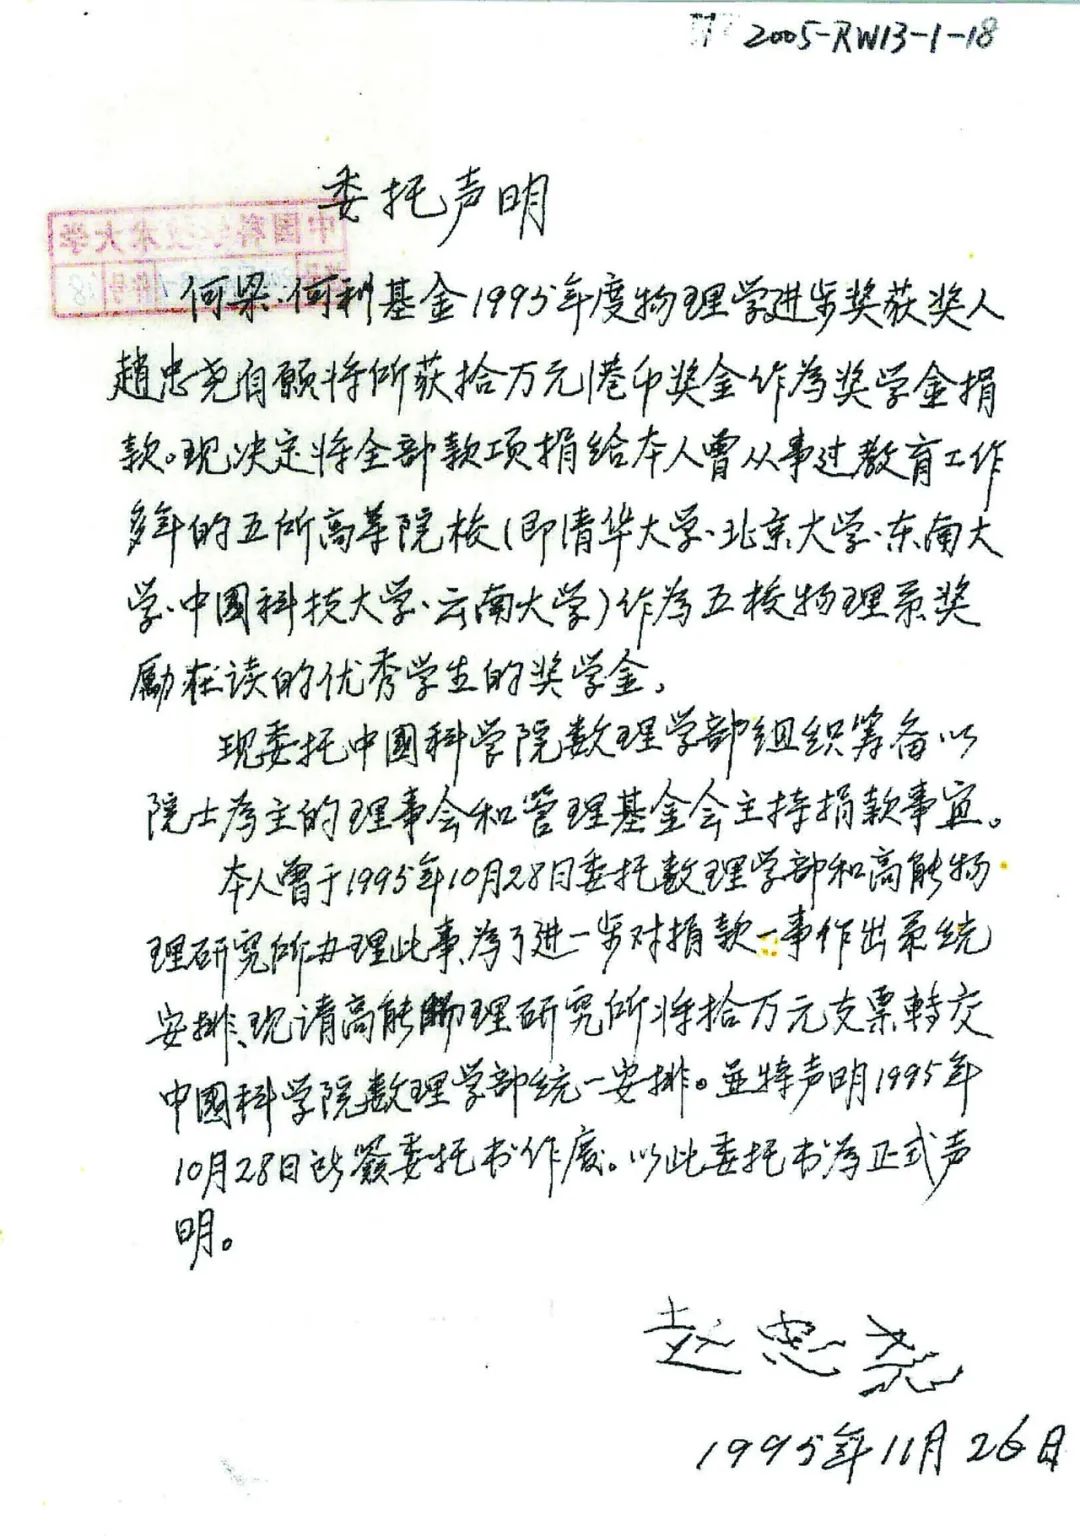 2005-RW13-1-18
委托声明
中国科学技术大学
18
何梁·何利基金1995年度物理学进步奖获奖人
趙忠尧自願将所获拾万元港币奖金作為奖学金捐
款。现决定将全部款项捐给本人曾从事过教育工作
多年的五所高等院校(即清华大学·北京大学·东南大
学·中國科技大学·云南大学)作為五校物理系奖
励在读的优秀学生的奖学金。
现委托中國科学院数理学部组织筹备以
院士為主的理事会和管理基金会主持捐款事宜。
本人曾于1995年10月28日委托数理学部和高能物
理研究所办理此事,為了进一步对捐款一事作出系统
安排、现请高能物理研究所将拾万元支票轉交
中國科学院数理学部统一安排。並特声明1995年
10月28日所簽委托书作废。以此委托书為正式声
明。
赵忠尧
1995年11月26日